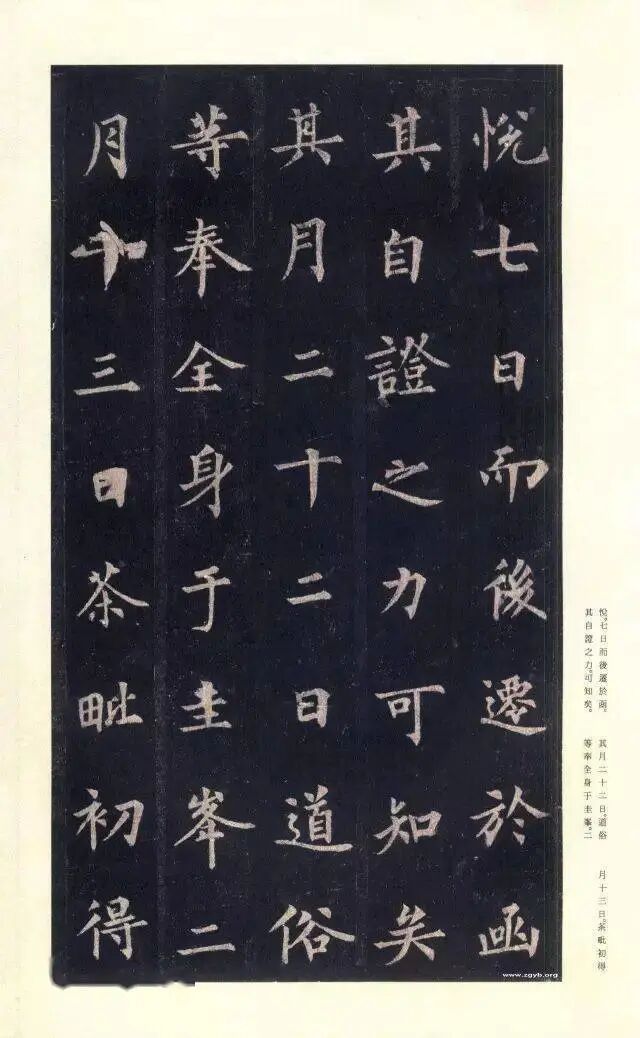 悅七日而後遷於函
其自證之力可知矣
其月二十二日道俗
等奉全身于圭峯二
月十三日荼毗初得
悅。七日而後遷於函。其自證之力。可知矣。
其月二十二日。道俗等奉全身于圭峯。二
月十三日。荼毗初得
www.zgyb.org